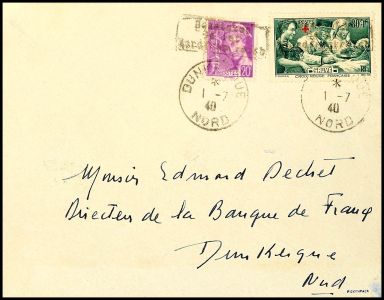 Besetztes
DUNKERQUE
1-7
40
NORD
POSTES 20
CROIX-ROUGE FRANÇAISE
DUNKERQUE
1-7
40
NORD
Monsieur Edmond Dechet
Directeur de la Banque de France
Dunkerque
Nord